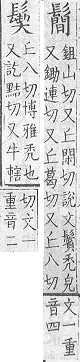 鬜鉏山切又丘閑切說文鬢禿皃
又鋤連切又丘葛切又丘八切
文一重
音四
鬝丘八切博雅禿也
又訖黠切又牛轄
切文一
重音二